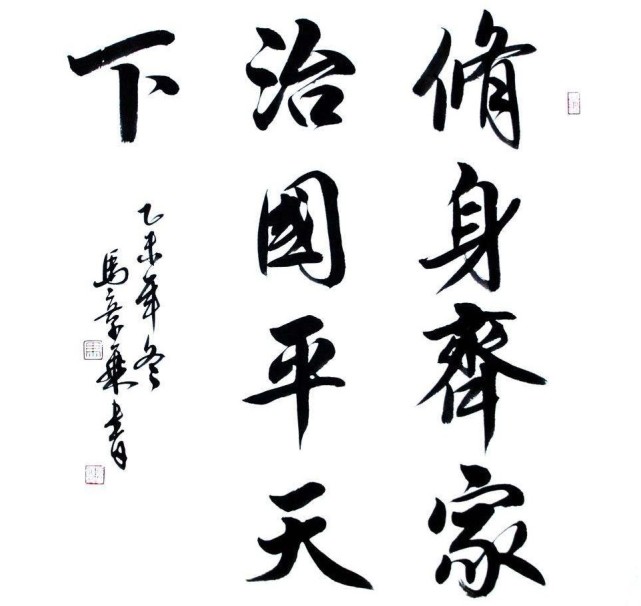 脩身齊家
治國平天
下
乙未年冬
馬章乗書